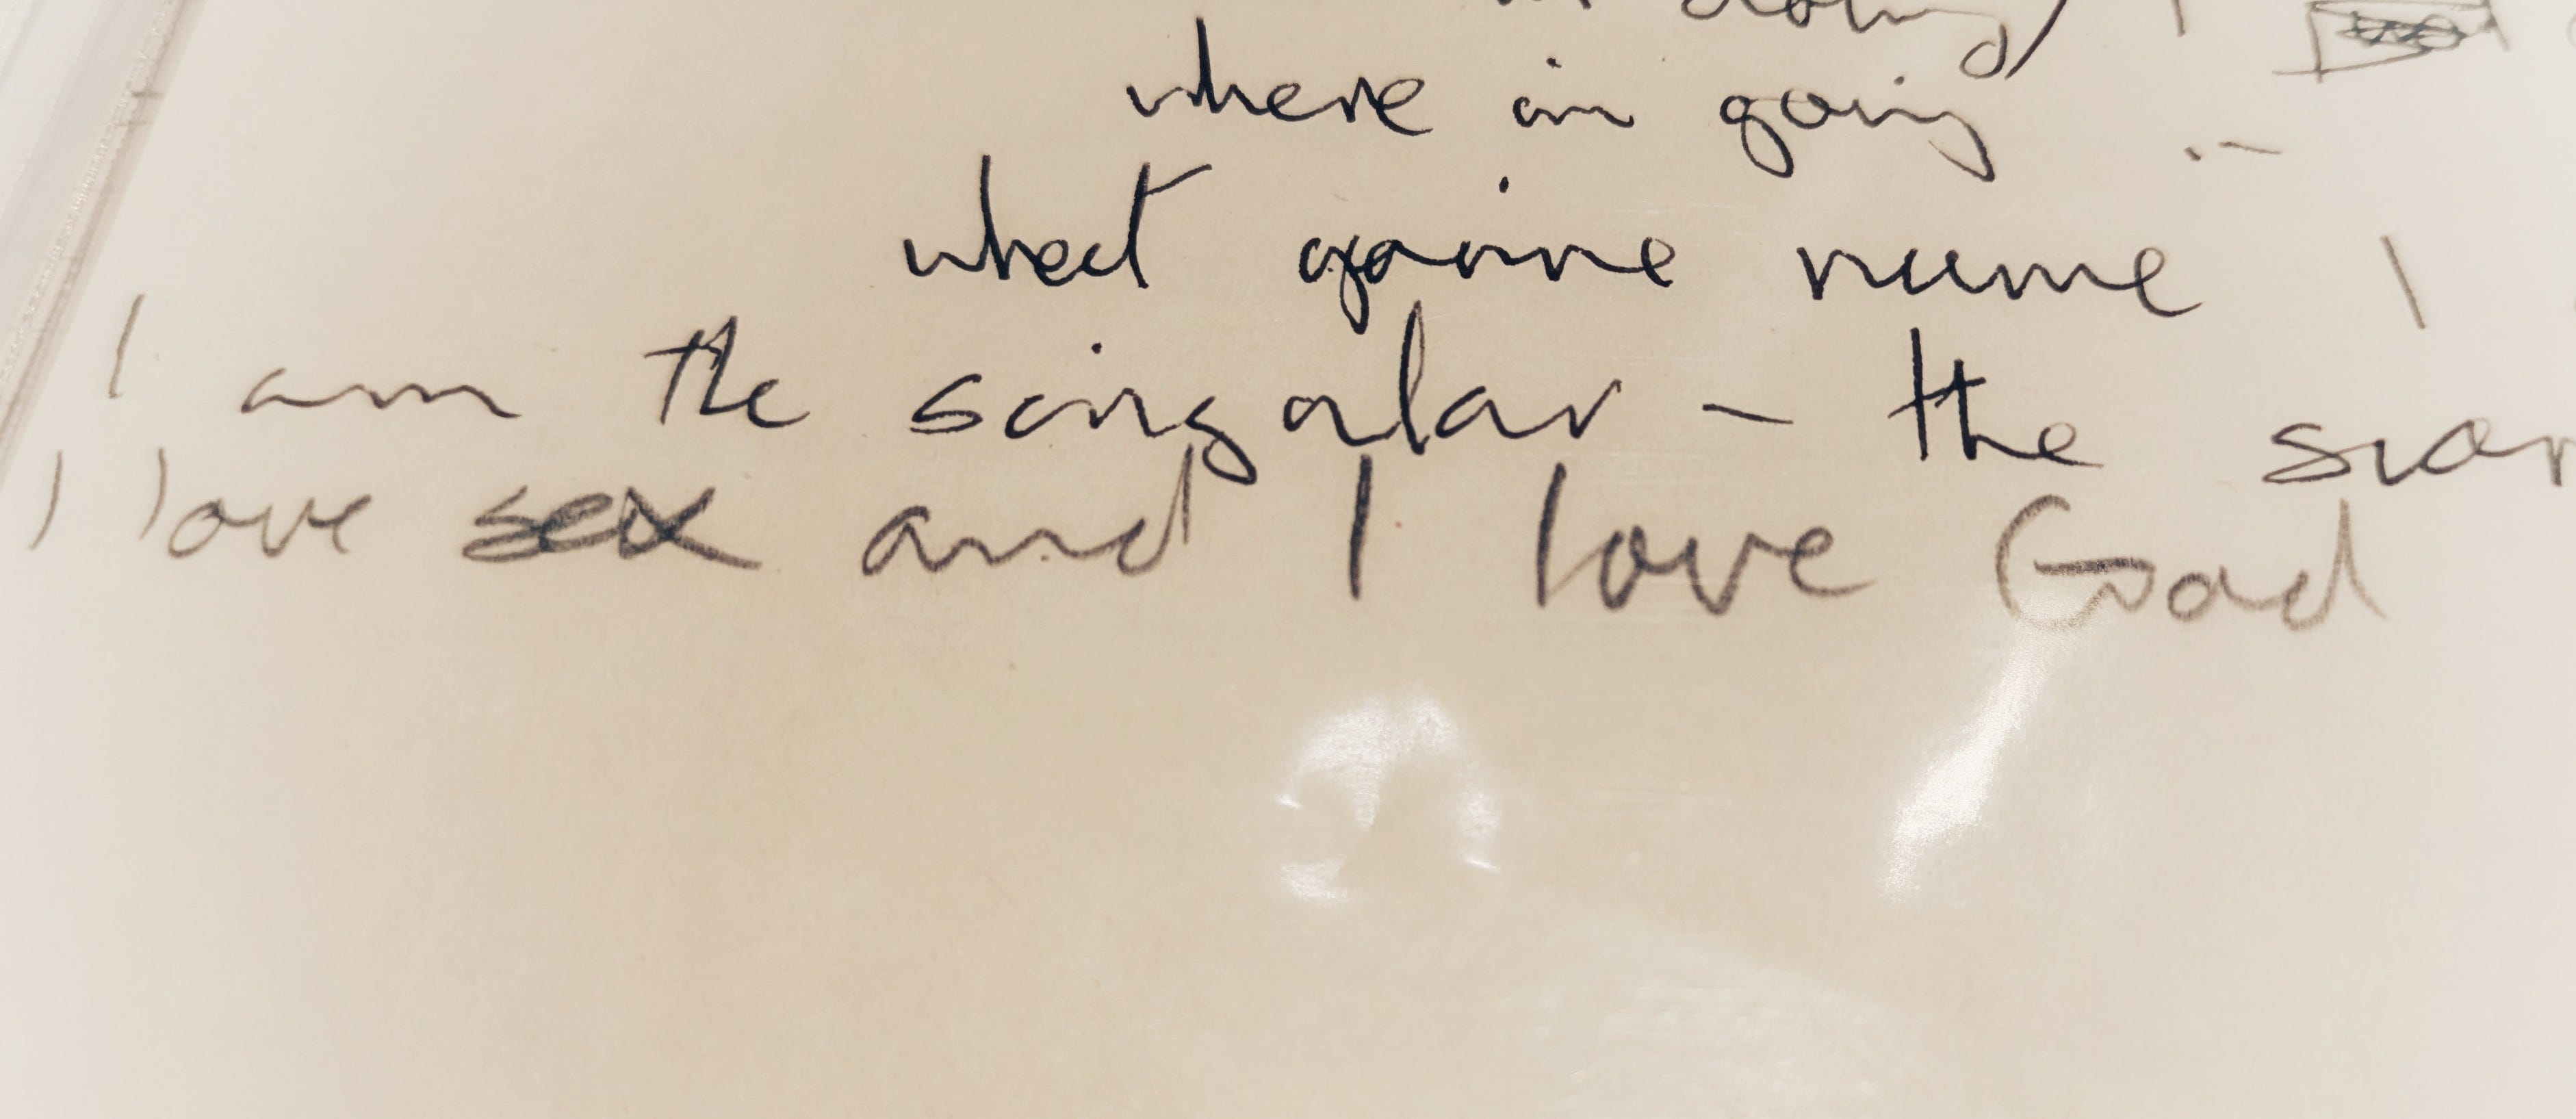 where im going
what gonne nume
I am the singular - the
I love sex and I love God